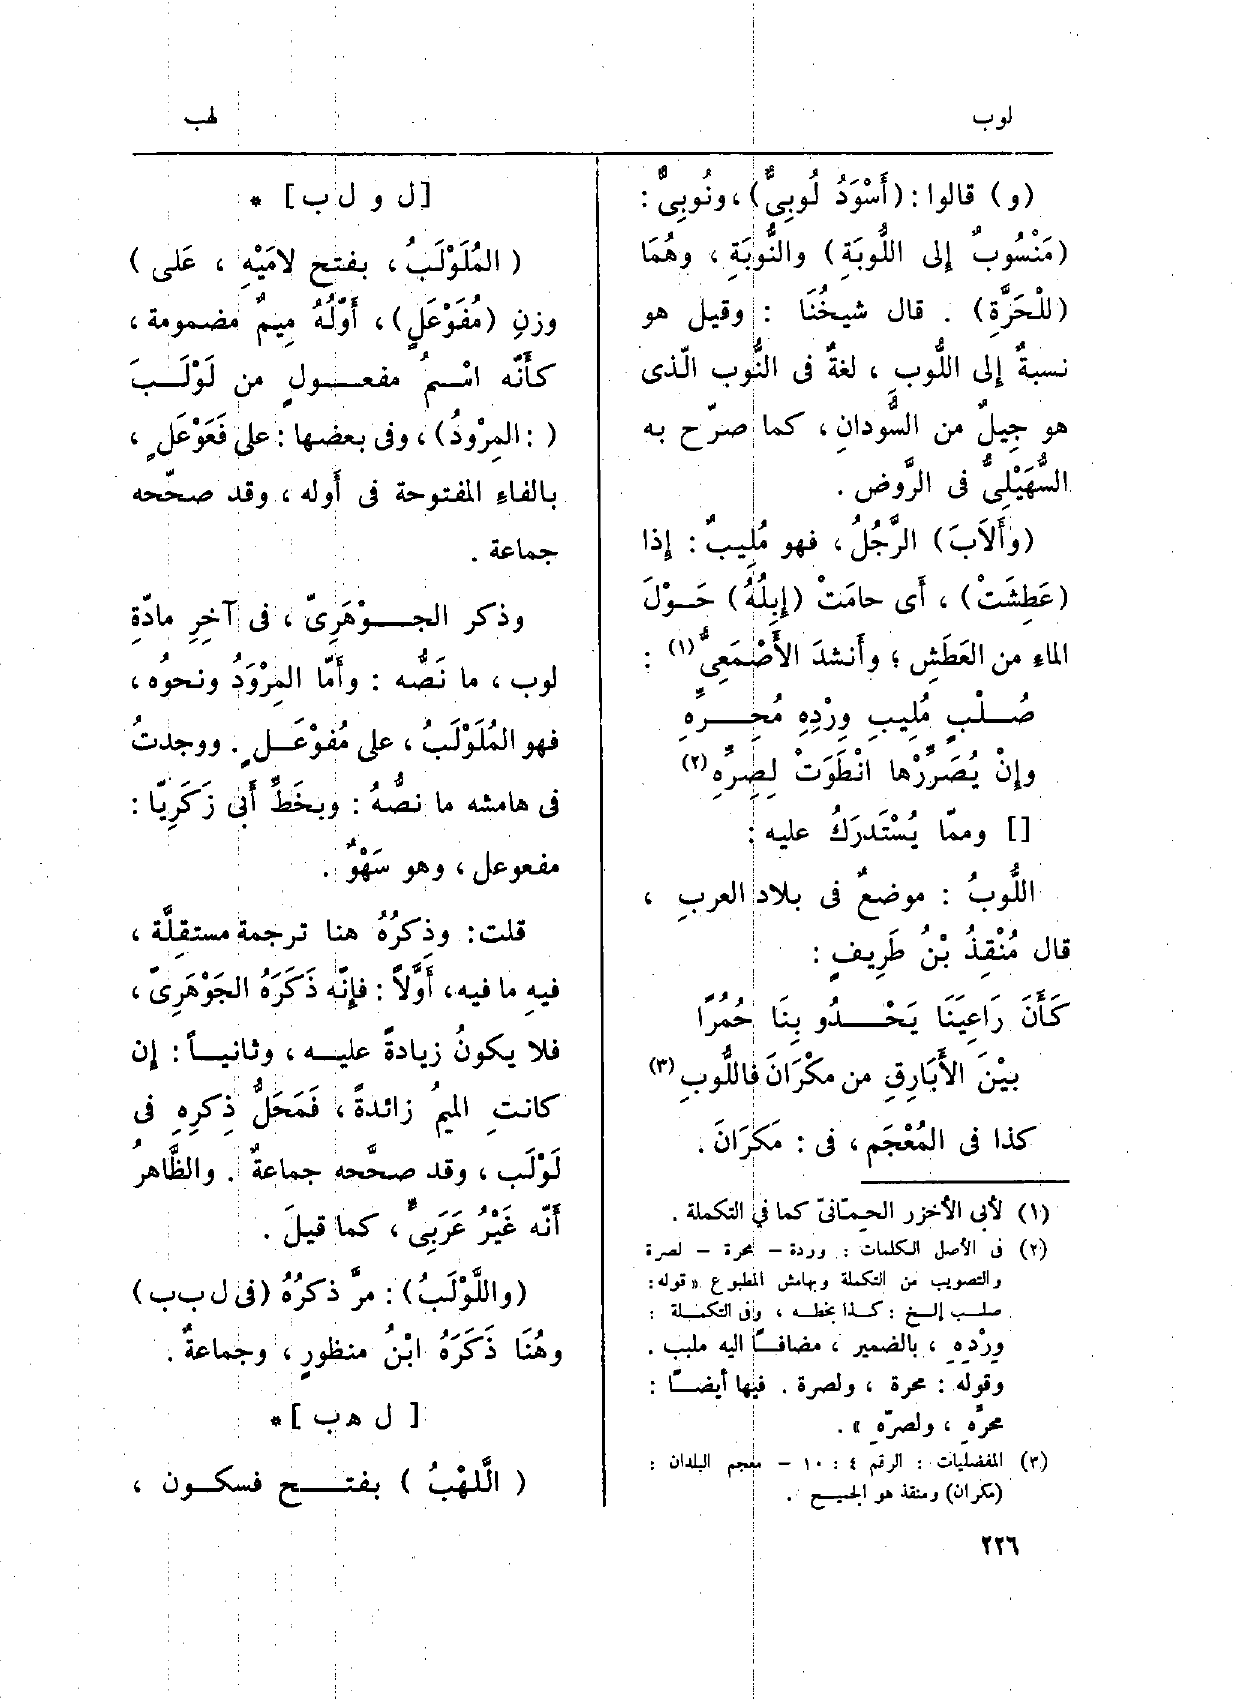 لوب
لهب
(و) قالوا : (أَسْوَدُ لُوبِىٌّ) ، ونُوبِىٌّ :
(مَنْسُوبٌ إلى اللُّوبَةِ) والنُّوبَةِ ، وهُمَا
(للْحَرَّةِ) . قال شيخُنَا : وقيل هو
نسبةٌ إلى اللُّوبِ ، لغةٌ فى النُّوب الّذى
هو جِيلٌ من السُّودانِ ، كما صرّح به
السُّهَيْلِىُّ فى الرَّوض .
(وأَلاَبَ) الرَّجُلُ ، فهو مُلِيبٌ : إذا
(عَطِشَتْ) ، أى حامَتْ (إبِلُهُ) حَوْلَ
الماءِ من العَطَشِ ؛ وأَنشدَ الأَصْمَعِىُّ (١) :
صُلْبٍ مُلِيبِ وِرْدِهِ مُحِرِّهِ
وإنْ يُصَرِّرْها انْطَوَتْ لِصِرِّهِ (٢)
[] وممّا يُسْتَدرَكُ عليه :
اللُّوبُ : موضعٌ فى بلاد العربِ ،
قال مُنْقِذُ بْنُ طَرِيفٍ :
كَأَنَّ رَاعِيَنَا يَحْدُو بِنَا حُمُرًا
بيْنَ الأَبَارِقِ من مكْرَانَ فاللُّوبِ (٣)
كذا فى المُعْجَمِ ، فى : مَكرَانَ .
(١) لأبى الأخزر الحِمّانىّ كما فى التكملة .
(٢) فى الأصل الكلمات : وردة - محرة - لصرة
والتصويب من التكملة وبهامش المطبوع « قوله :
صلب إلخ : كذا بخطه ، وفى التكملة :
وِرْدِهِ ، بالضمير ، مضافاً اليه مليب .
وقوله : محرة ، ولصرة . فيها أيضاً :
محرِّهِ ، ولصرِّهِ » .
(٣) المفضليات : الرقم ٤ : ١٠ - معجم البلدان :
(مكران) ومنقذ هو الجميح .
٢٢٦
[ل و ل ب] *
(المُلَوْلَبُ ، بفتح لامَيْهِ ، عَلى)
وزنِ (مُفَوْعَلٍ) ، أَوّلُهُ مِيمٌ مضمومة ،
كأَنّه اسْمُ مفعولٍ من لَوْلَبَ
( : المِرْوَدُ) ، وفى بعضها : على فَعَوْعَلٍ ،
بالفاءِ المفتوحة فى أَوله ، وقد صحّحه
جماعة .
وذكر الجَوْهَرِىّ ، فى آخِرِ مادّةِ
لوب ، ما نَصُّه : وأَمّا المِرْوَدُ ونحوُه ،
فهو المُلَوْلَبُ ، على مُفوْعَلٍ . ووجدتُ
فى هامشه ما نصُّهُ : وبخَطِّ أَبى زَكَرِيّا :
مفعوعل ، وهو سَهْوٌ .
قلت : وذِكرُهُ هنا ترجمة مستقلَّة ،
فيهِ ما فيه ، أَوَّلاً : فإنّه ذَكَرَهُ الجَوْهَرِىّ ،
فلا يكونُ زيادةً عليه ، وثانياً : إن
كانتِ الميمُ زائدةً ، فَمَحَلُّ ذِكرِهِ فى
لَوْلَب ، وقد صحَّحه جماعةٌ . والظَّاهرُ
أَنّه غَيْرُ عَرَبِىٍّ ، كما قيلَ .
(واللَّوْلَبُ) : مرَّ ذكرُهُ (فى ل ب ب)
وهُنَا ذَكَرَهُ ابْنُ منظورٍ ، وجماعةٌ .
[ ل ه ب ] *
( اللَّهْبُ ) بفتح فسكون ،